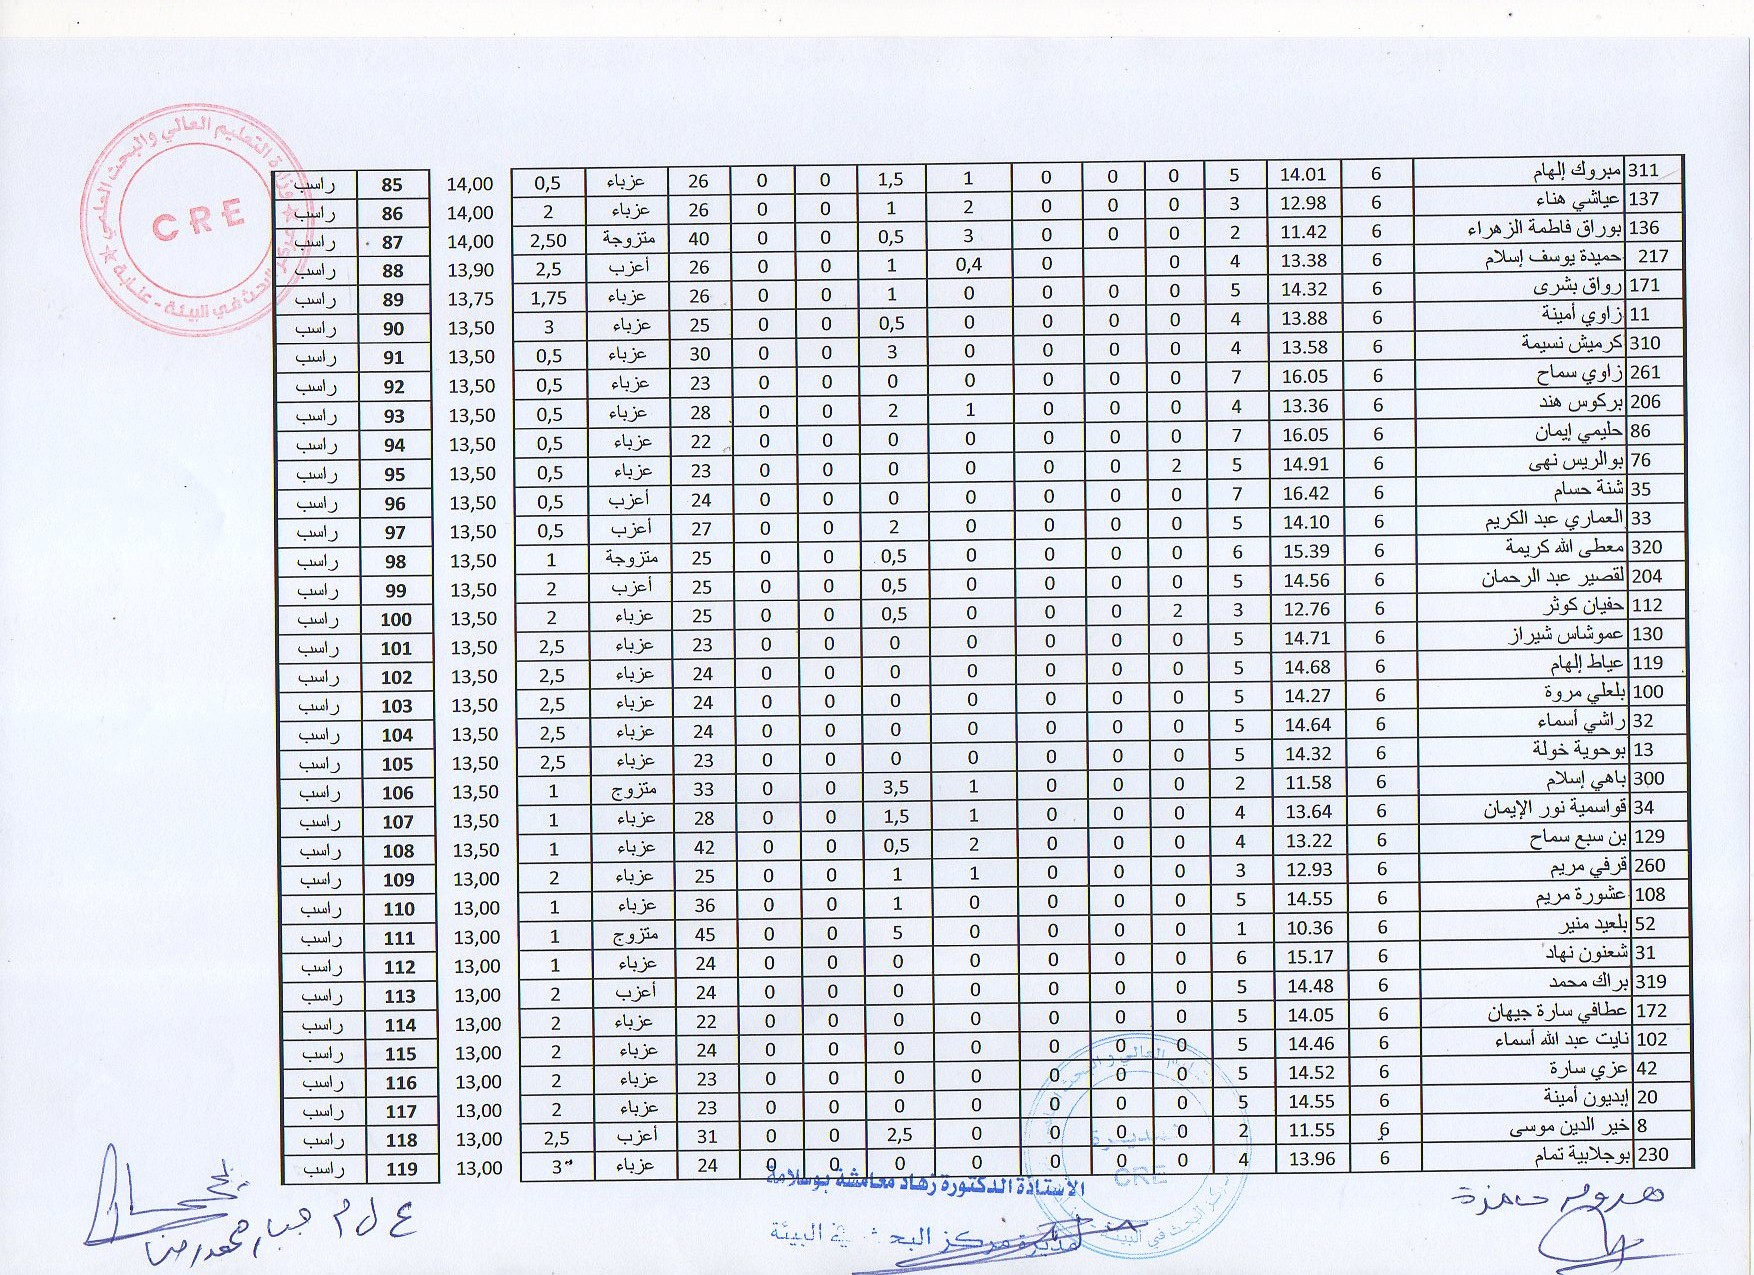 وزارة التعليم العالي والبحث العلمي
CRE
مركز البحث في البيئة - عنابة
311 مبروك إلهام 6 14.01 5 0 0 0 1 1,5 0 0 26 عزباء 0,5 14,00 85 راسب
137 عياشي هناء 6 12.98 3 0 0 0 2 1 0 0 26 عزباء 2 14,00 86 راسب
136 بوراق فاطمة الزهراء 6 11.42 2 0 0 0 3 0,5 0 0 40 متزوجة 2,50 14,00 87 راسب
217 حميدة يوسف إسلام 6 13.38 4 0 0 0,4 1 0 0 26 أعزب 2,5 13,90 88 راسب
171 رواق بشرى 6 14.32 5 0 0 0 0 1 0 0 26 عزباء 1,75 13,75 89 راسب
11 زاوي أمينة 6 13.88 4 0 0 0 0 0,5 0 0 25 عزباء 3 13,50 90 راسب
310 كرميش نسيمة 6 13.58 4 0 0 0 0 3 0 0 30 عزباء 0,5 13,50 91 راسب
261 زاوي سماح 6 16.05 7 0 0 0 0 0 0 0 23 عزباء 0,5 13,50 92 راسب
206 بركوس هند 6 13.36 4 0 0 0 1 2 0 0 28 عزباء 0,5 13,50 93 راسب
86 حليمي إيمان 6 16.05 7 0 0 0 0 0 0 0 22 عزباء 0,5 13,50 94 راسب
76 بوالريس نهى 6 14.91 5 2 0 0 0 0 0 0 23 عزباء 0,5 13,50 95 راسب
35 شنة حسام 6 16.42 7 0 0 0 0 0 0 0 24 أعزب 0,5 13,50 96 راسب
33 العماري عبد الكريم 6 14.10 5 0 0 0 0 2 0 0 27 أعزب 0,5 13,50 97 راسب
320 معطى الله كريمة 6 15.39 6 0 0 0 0 0,5 0 0 25 متزوجة 1 13,50 98 راسب
204 لقصير عبد الرحمان 6 14.56 5 0 0 0 0 0,5 0 0 25 أعزب 2 13,50 99 راسب
112 حفيان كوثر 6 12.76 3 2 0 0 0 0,5 0 0 25 عزباء 2 13,50 100 راسب
130 عموشاس شيراز 6 14.71 5 0 0 0 0 0 0 0 23 عزباء 2,5 13,50 101 راسب
119 عياط إلهام 6 14.68 5 0 0 0 0 0 0 0 24 عزباء 2,5 13,50 102 راسب
100 بلعلي مروة 6 14.27 5 0 0 0 0 0 0 0 24 عزباء 2,5 13,50 103 راسب
32 راشي أسماء 6 14.64 5 0 0 0 0 0 0 0 24 عزباء 2,5 13,50 104 راسب
13 بوحوية خولة 6 14.32 5 0 0 0 0 0 0 0 23 عزباء 2,5 13,50 105 راسب
300 باهي إسلام 6 11.58 2 0 0 0 1 3,5 0 0 33 متزوج 1 13,50 106 راسب
34 قواسمية نور الإيمان 6 13.64 4 0 0 0 1 1,5 0 0 28 عزباء 1 13,50 107 راسب
129 بن سبع سماح 6 13.22 4 0 0 0 2 0,5 0 0 42 عزباء 1 13,50 108 راسب
260 قرفي مريم 6 12.93 3 0 0 0 1 1 0 0 25 عزباء 2 13,00 109 راسب
108 عشورة مريم 6 14.55 5 0 0 0 0 1 0 0 36 عزباء 1 13,00 110 راسب
52 بلعيد منير 6 10.36 1 0 0 0 0 5 0 0 45 متزوج 1 13,00 111 راسب
31 شعنون نهاد 6 15.17 6 0 0 0 0 0 0 0 24 عزباء 1 13,00 112 راسب
319 براك محمد 6 14.48 5 0 0 0 0 0 0 0 24 أعزب 2 13,00 113 راسب
172 عطافي سارة جيهان 6 14.05 5 0 0 0 0 0 0 0 22 عزباء 2 13,00 114 راسب
102 نايت عبد الله أسماء 6 14.46 5 0 0 0 0 0 0 0 24 عزباء 2 13,00 115 راسب
42 عزي سارة 6 14.52 5 0 0 0 0 0 0 0 23 عزباء 2 13,00 116 راسب
20 إبديون أمينة 6 14.55 5 0 0 0 0 0 0 0 23 عزباء 2 13,00 117 راسب
8 خير الدين موسى 6 11.55 2 0 0 0 0 2,5 0 0 31 أعزب 2,5 13,00 118 راسب
230 بوجلابية تمام 6 13.96 4 0 0 0 0 0 0 0 24 عزباء 3 13,00 119 راسب
CRE
الأستاذة الدكتورة زهاد معامشة بوسلامة
مديرة مركز البحث في البيئة
حمزة
ع ل م